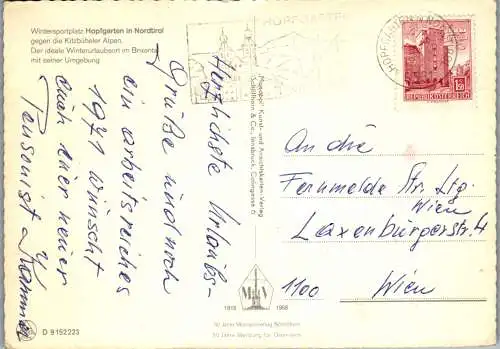 Wintersportplatz Hopfgarten in Nordtirol
gegen die Kitzbüheler Alpen.
Der ideale Winterurlaubsort im Brixental
mit seiner Umgebung
HOPFGARTEN
Herzlichste Urlaubs-
Grüße und noch
ein arbeitsreiches
1971 wünscht
euch euer neuer
Pensionist
Monopol-Kunst- und Ansichtskarten-Verlag
Schöllhorn & Co., Innsbruck, Colingasse 6
1.50
REPUBLIK ÖSTERREICH
An die
Fernmelde Str. Ltg.
Wien
Laxenburgerstr. 4
1100 Wien
1918 1968
50 Jahre Monopolverlag Schöllhorn
50 Jahre Werbung für Österreich
D 9152223